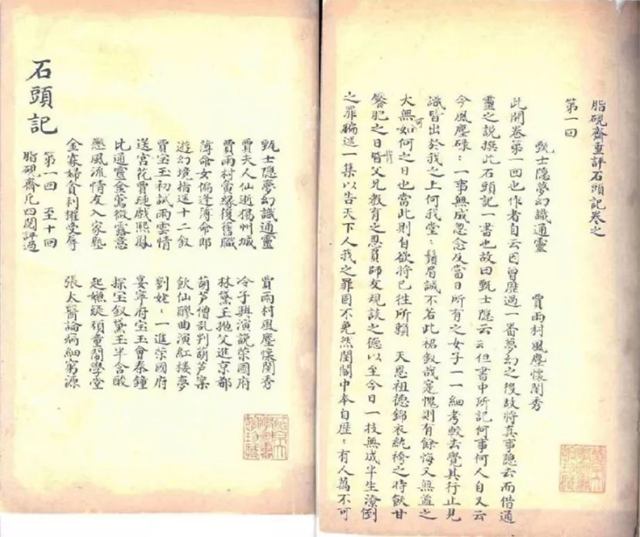 甄士隱夢幻識通靈 賈雨村風塵懷閨秀
賈夫人仙逝揚州城 冷子興演說榮國府
賈雨村夤緣復舊職 林黛玉抛父進京都
薄命女偏逢薄命郎 葫芦僧乱判葫芦案
遊幻境指迷十二釵 飲仙醪曲演紅樓夢
賈宝玉初試雨雲情 劉姥〻一進榮國府
送宫花賈璉戲熙鳳 宴寧府宝玉會秦鍾
比通靈金鶯微露意 探宝釵黛玉半含酸
戀風流情友入家塾 起嫌疑頑童鬧學堂
金寡婦貪利權受辱 張太醫論病細窮源
第一回 至十回
脂硯齋凡四閱評過
石頭記
脂硯齋重評石頭記卷之
第一回
甄士隱夢幻識通靈 賈雨村風塵懷閨秀
此開卷第一回也作者自云因曾歷過一番夢幻之後故將真事隱去而借通
靈之說撰此石頭記一書也故曰甄士隱云云但書中所記何事何人自又云
今風塵碌〻一事無成忽念及當日所有之女子一一細考較去覺其行止見
識皆出於我之上何我堂〻鬚眉誠不若此裙釵哉寔愧則有餘悔又無益之
大無可如何之日也當此則自欲將已往所賴 天恩祖德錦衣紈袴之時飫甘
饜肥之日背父兄教育之恩負師友規談之德以至今日一技無成半生潦倒
之罪編述一集以告天下人我之罪固不免然閨閣中本自歷〻有人萬不可